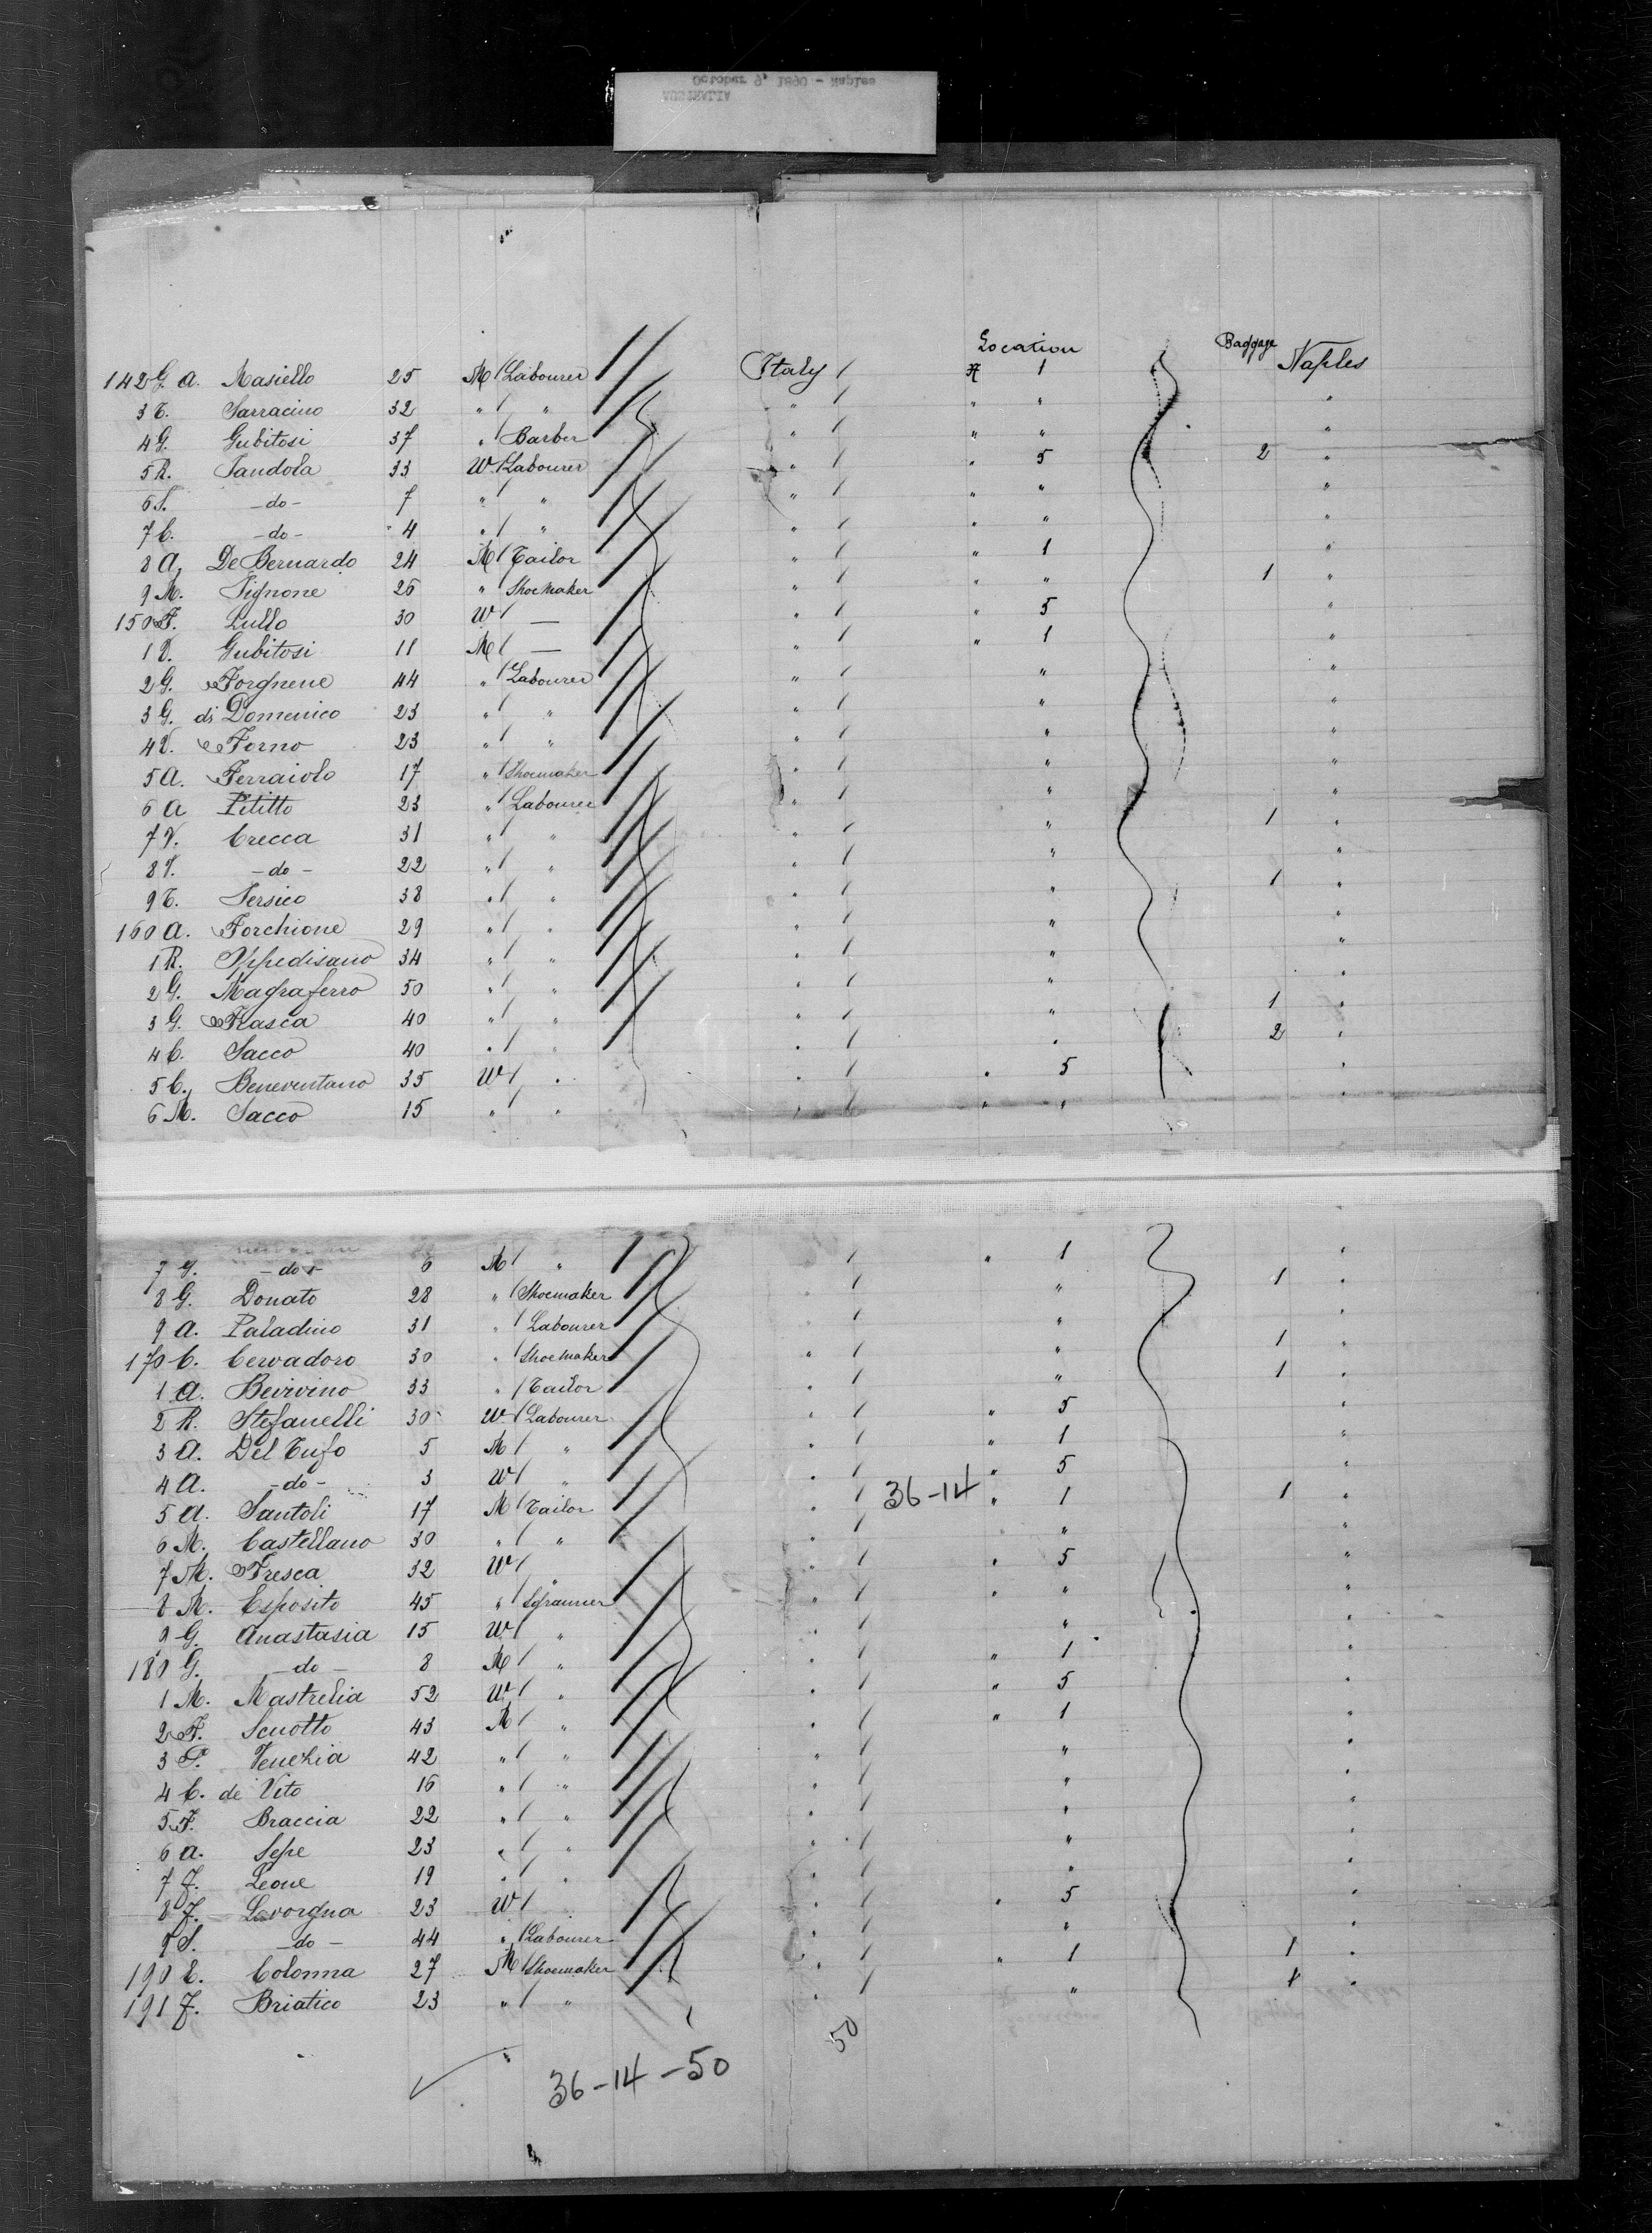 October 9, 1890 - Naples
AUSTRALIA
Location Baggage
142 G. A. Masiello 25 M / Labourer Italy / 1 Naples
3 T. Sarracino 32 " / " " / " " "
4 G. Gubitosi 37 " / Barber " / " " "
5 R. Jandola 33 W / Labourer " / " 5 2 "
6 S. -do- 7 " / " " / " " "
7 C. -do- 4 " / " " / " " "
8 A. De Bernardo 24 M / Tailor " / " 1 "
9 M. Signone 26 " Shoemaker " / " " 1 "
150 F. Lullo 30 W / — " / " 5 "
1 V. Gubitosi 11 M / — " / " 1 "
2 G. Forgnene 44 " / Labourer " / " "
3 G. di Domenico 23 " / " " / " "
4 V. Forno 23 " / " " / " "
5 A. Ferraiolo 17 " / Shoemaker " / " "
6 A Petitto 23 " / Labourer " / " "
7 V. Crecca 31 " / " " / " 1 "
8 -do- 22 " / " " / " "
9 T. Persico 38 " / " " / " 1 "
160 A. Forchione 29 " / " " / " "
1 R. Oppedisano 34 " / " " / " "
2 G. Magraferro 50 " / " " / " "
3 G. Frasca 40 " / " " / " 1 "
4 C. Sacco 40 " / " " / " 2 "
5 C. Beneventano 35 W / " " / " 5 "
6 M. Sacco 15 " / " " / " " "
7 G. -do- 6 M / " / " 1 "
8 G. Donato 28 " / Shoemaker / " 1 "
9 A. Paladino 31 " / Labourer / " "
170 C. Cervadoro 30 " / Shoemaker " / " 1 "
1 A. Bevivino 33 " / Tailor " / " 1 "
2 R. Stefanelli 30 W / Labourer " / " 5 "
3 A. Del Tufo 5 M / " " / " 1 "
4 A. -do- 3 W / " " / " 5 "
5 A. Santoli 17 M / Tailor " / 36-14 " 1 1 "
6 M. Castellano 30 " / " " / " "
7 M. Fresca 32 W / " " / " 5 "
8 M. Esposito 45 " / " / " " "
9 G. Anastasia 15 W / " " / " "
180 G. -do- 8 M / " " / " 1 "
1 M. Mastrelia 52 W / " " / " 5 "
2 F. Scuotto 43 M / " " / " 1 "
3 P. Venehia 42 " / " " / " "
4 C. de Vito 16 " / " " / " "
5 F. Braccia 22 " / " " / " "
6 A. Sepe 23 " / " " / " "
7 J. Leone 19 " / " " / " "
8 J. Lavorgna 23 W / " / " 5 "
9 S. -do- 44 " / Labourer " / " "
190 E. Colonna 27 M / Shoemaker " / " 1 1 "
191 J. Briatico 23 " / " " / " 1 "
50
36-14-50